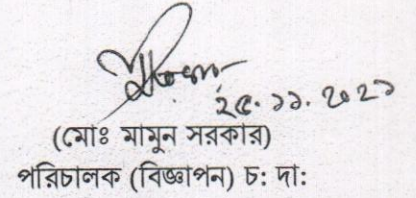 ২৫.১১.২০২১
(মোঃ মামুন সরকার)
পরিচালক (বিজ্ঞাপন) চ: দা: